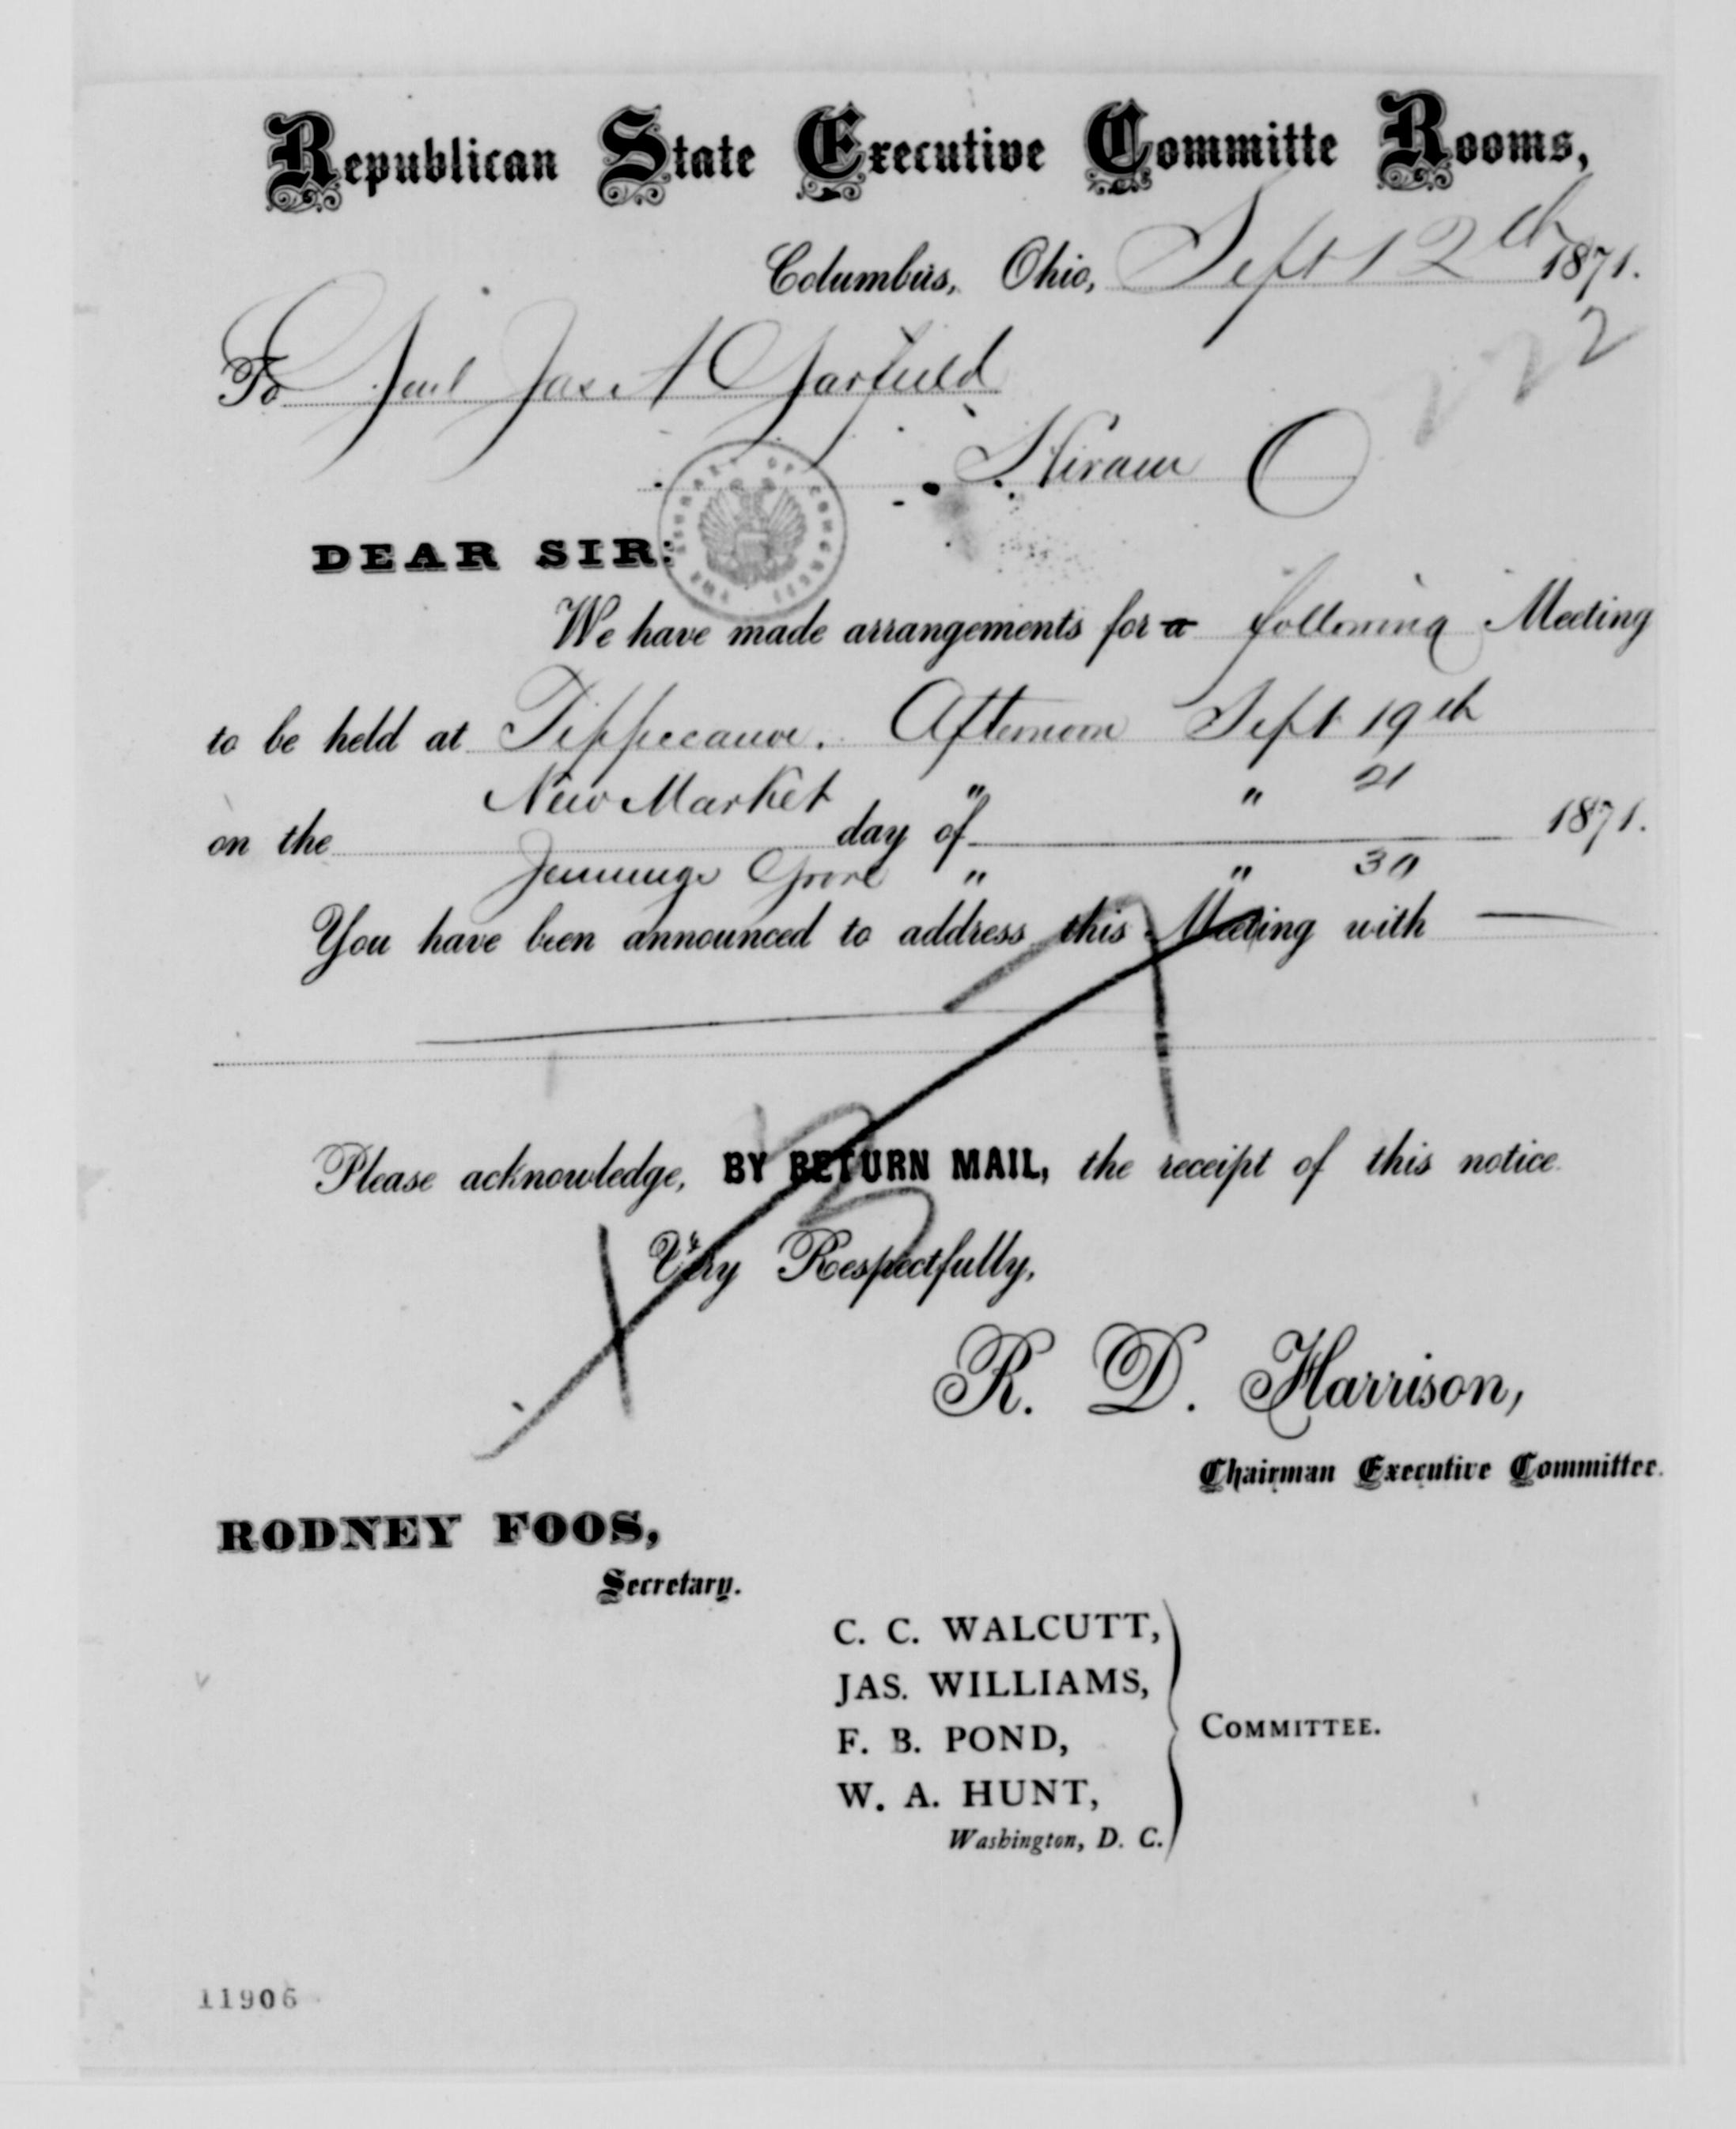 Republican State Executive Committe Rooms,
Columbus, Ohio, Sept 12th 1871.
222
To Genl Jas A Garfield
Hiram O
THE LIBRARY OF CONGRESS
DEAR SIR:
We have made arrangements for a following Meeting
to be held at Tippecanoe. Afternoon Sept 19th
New Market " " 21
on the day of 1871.
Jennings Grove " " 30
You have been announced to address this Meeting with
Please acknowledge, BY RETURN MAIL, the receipt of this notice.
Very Respectfully,
R. D. Harrison,
Chairman Executive Committee.
RODNEY FOOS,
Secretary.
C. C. WALCUTT,
JAS. WILLIAMS,
F. B. POND,
COMMITTEE.
W. A. HUNT,
Washington, D. C.
11906